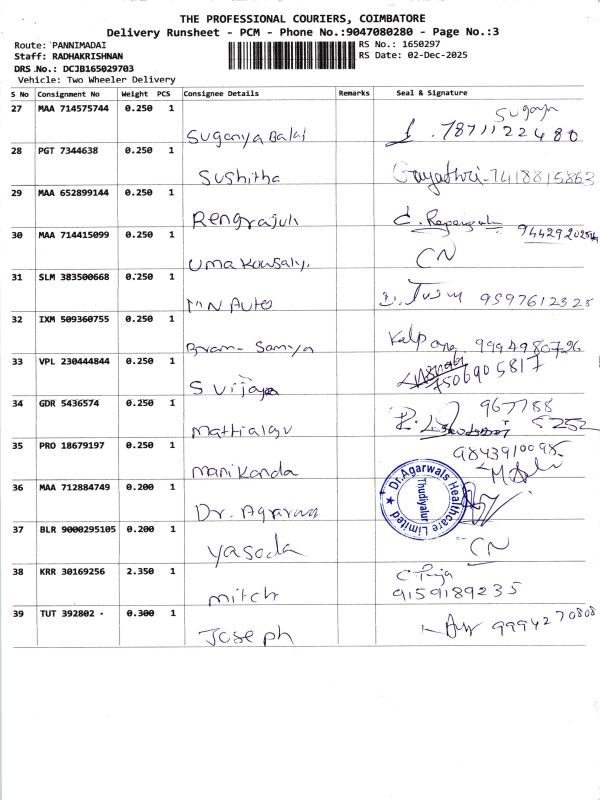 THE PROFESSIONAL COURIERS, COIMBATORE
Delivery Runsheet - PCM - Phone No.:9047080280 - Page No.:3
Route: PANNIMADAI RS No.: 1650297
Staff: RADHAKRISHNAN RS Date: 02-Dec-2025
DRS No.: DCJB165029703
Vehicle: Two Wheeler Delivery
S No Consignment No Weight PCS Consignee Details Remarks Seal & Signature
27 MAA 714575744 0.250 1 Suganya Balaj Suganya 7871122480
28 PGT 7344638 0.250 1 Sushitha Gayathri-7418815863
29 MAA 652899144 0.250 1 Rengrajuli
30 MAA 714415099 0.250 1 Uma Kowsaly. CN
31 SLM 383500668 0.250 1 MN Auto 9597612325
32 IXM 509360755 0.250 1 Kalpana 9994980796
33 VPL 230444844 0.250 1 S Vijaya 7506905817
34 GDR 5436574 0.250 1 Mathialagu 967788 5252
35 PRO 18679197 0.250 1 Manikanda 9843910098
36 MAA 712884749 0.200 1 Dr. Agarwa Dr.Agarwals Healthcare Limited Thudiyalur
37 BLR 9000295105 0.200 1 Yasoda CN
38 KRR 30169256 2.350 1 Mitch 9159189235
39 TUT 392802 0.300 1 Joseph 9994270808